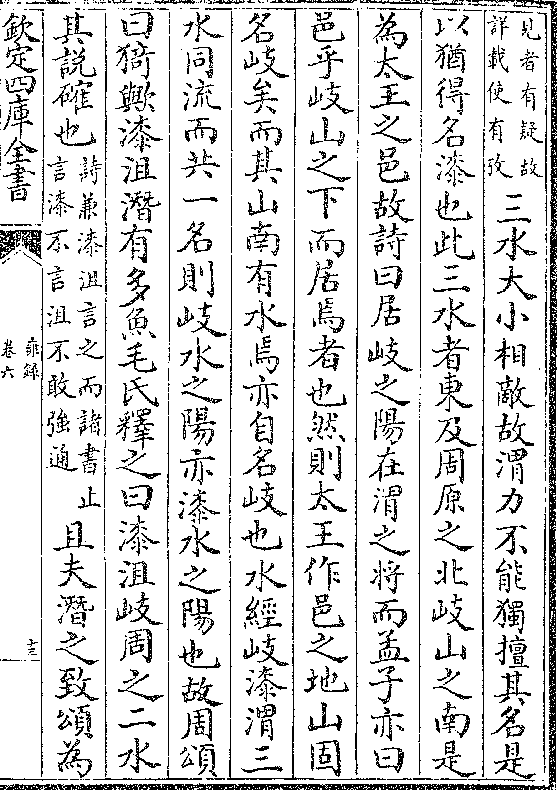 見者有疑故
詳載使有攷
三水大小相敵故渭力不能獨擅其名是
以猶得名漆也此三水者東及周原之北岐山之南是
為太王之邑故詩曰居岐之陽在渭之將而孟子亦曰
邑乎岐山之下而居焉者也然則太王作邑之地山固
名岐矣而其山南有水焉亦自名岐也水經岐漆渭三
水同流而共一名則岐水之陽亦漆水之陽也故周頌
曰猗歟漆沮潛有多魚毛氏釋之曰漆沮岐周之二水
其說確也
詩兼漆沮言之而諸書止
言漆不言沮不敢強通
且夫潛之致頌為
欽定四庫全書
雍録
卷六
十三